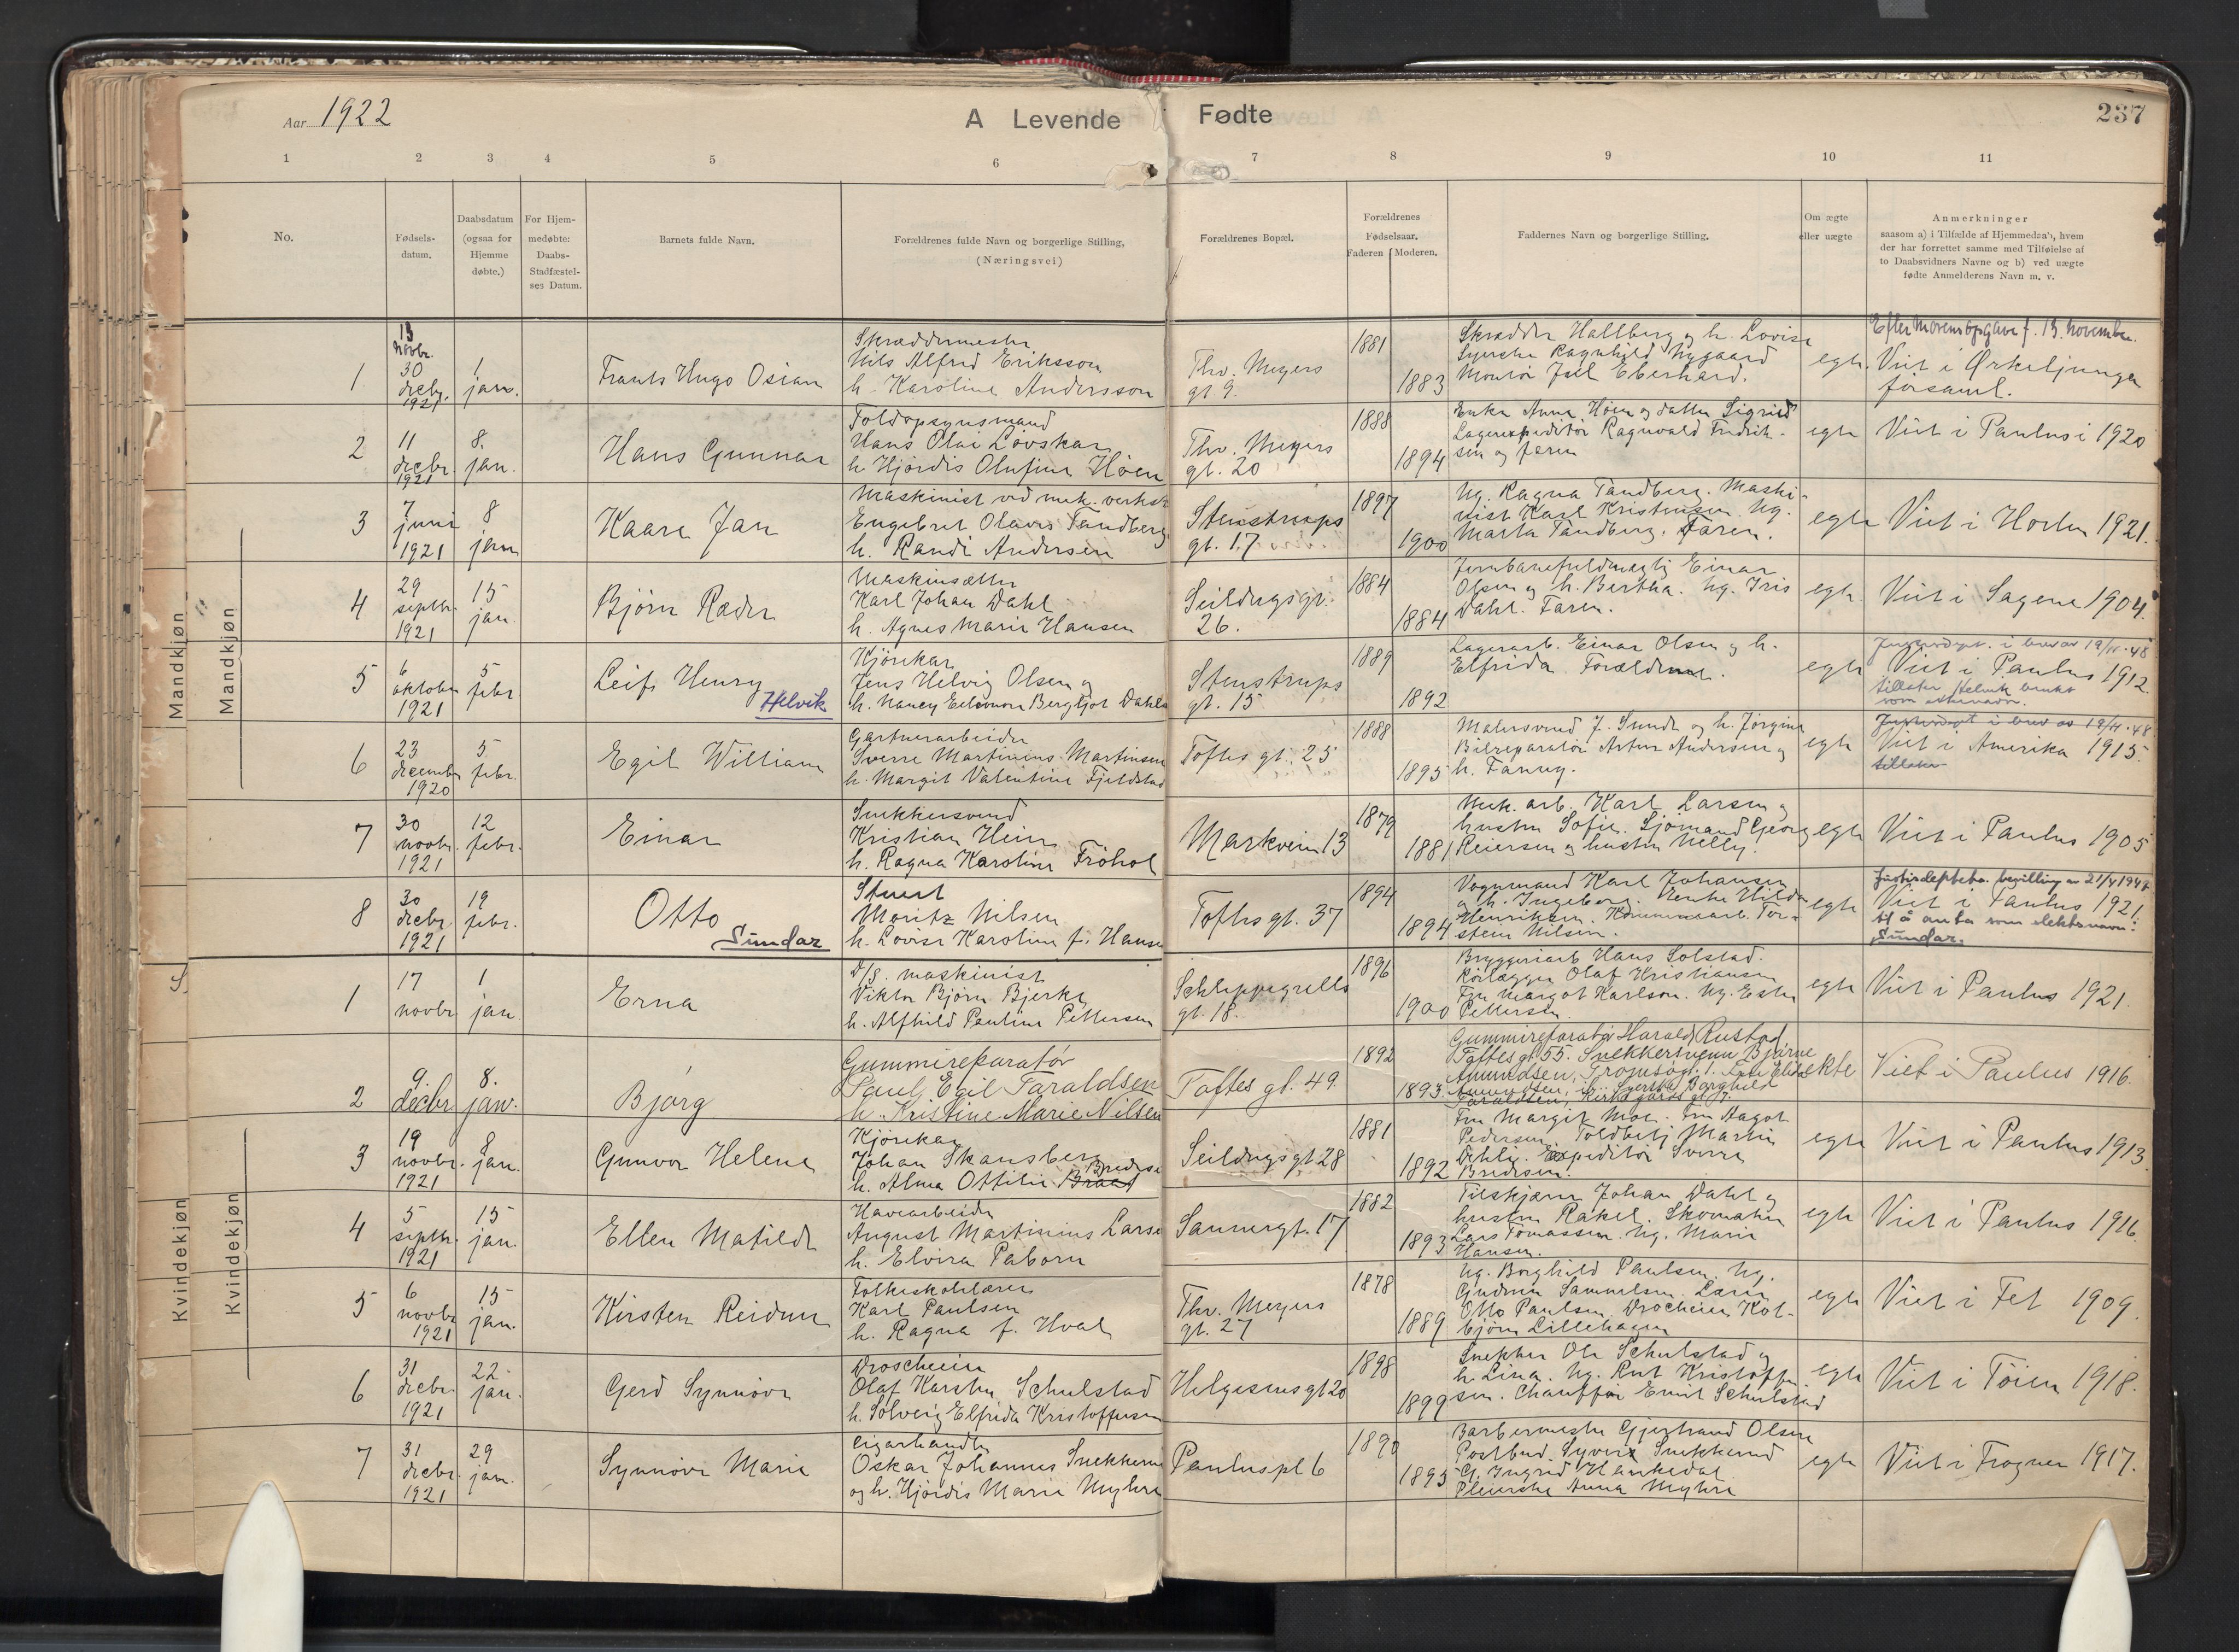 Aar 1922
A Levende Fødte
237
1 2 3 4 5 6 7 8 9 10 11
No.
Fødsels-
datum.
Daabsdatum
(ogsaa for
Hjemme
døbte.)
For Hjem-
medøbte:
Daabs-
Stadfæstel-
ses Datum.
Barnets fulde Navn.
Forældrenes fulde Navn og borgerlige Stilling,
(Næringsvei)
Forældrenes Bopæl.
Forældrenes
Fødselsaar.
Faderen Moderen.
Faddernes Navn og borgerlige Stilling.
Om ægte
eller uægte
Anmerkninger
saasom a) i Tilfælde af Hjemmedaab, hvem
der har forrettet samme med Tilføielse af
to Daabsvidners Navne og b) ved uægte
fødte Anmelderens Navn m. v.
Mandkjøn
Mandkjøn
1
13
novbr.
30
decbr.
1921
1
jan.
Frants Hugo Osian
Skræddermester
Nils Alfred Eriksson
h. Karoline Andersson
Thv. Meyers
gt 9.
1881
1883
Skrædder Hallberg og h. Lovise
Syerske Ragnhild Nygaard
Montør Juel Eberhard.
egte.
Efter Morens opgave f. 13. november.
Viet i Ørkeljunga
församl.
2
11
decbr.
1921
8.
jan.
Hans Gunnar
Toldopsynsmand
Hans Olai Løvskar
h. Hjördis Olufine Höen
Thv. Meyers
gt. 20
1888
1894
Enke Anna Höen og datter Sigrid
Lagerexpeditör Ragnvald Fredrik-
sen og faren
egte
Viet i Paulus i 1920
3
7
juni
1921
8
jan
Kaare Jan
Maskinist ved mek. verkst
Engebret Olaves Tandberg
h. Randi Andersen
Stenstrups
gt. 17
1897
1900
Ug. Ragna Tandberg. Maski-
nist Karl Kristensen. Ug.
Marta Tandberg. Faren.
egte
Viet i Horten 1921.
4
29
septbr.
1921
15
jan.
Bjørn Ræder
Maskinsætter
Karl Johan Dahl
h. Agnes Marie Hansen
Seildugsgt.
26.
1884
1884
Jernbanefuldmægtig Einar
Olsen og h. Bertha. Ug. Iris
Dahl. Faren.
egte
Viet i Sagene 1904.
5
6
oktober
1921
5
febr
Leif Henry
Helvik
Kjörekar
Jens Helvig Olsen og
h. Nancy Eleonore Bergljot Dahl
Stenstrups
gt. 15
1889
1892
Lagerarb. Einar Olsen og h.
Elfrida. Forældrene.
egte
Justisdept. i brev av 19/11.48
Viet i Paulus 1912.
tillater Helvik brukt
som etternavn.
6
23
decembr
1920
5
febr.
Egil William
Gartnerarbeider
Sverre Martinius Martinsen
h. Margit Valentine Fjeldstad
Toftes gt. 25
1888
1895
Malersvend J. Sunde og h. Jørgine
Bilreparatør Artur Andersen og
h. Fanny.
egte
Justisdept i brev av 19/11.48
Viet i Amerika 1915.
tillater
7
30
novbr.
1921
12
febr.
Einar
Snekkersvend
Kristian Hein
h. Ragna Karoline Fröhol
Markveien 13
1879
1881
Mek. arb. Karl Larsen og
hustru Sofie. Sjömand Georg
Reiersen og hustru Nelly.
egte
Viet i Paulus 1905
8
30
decbr.
1921
19
febr.
Otto
Sundar
Stuert
Moritz Nilsen
h. Lovise Karoline f. Hansen
Toftes gt. 37
1894
1894
Vognmand Karl Johansen
og h. Ingeborg. Enke Hilda
Henriksen. Kommunearb. Tor-
stein Nilsen.
egte
Justisdeptets. bevilling av 21/4 1947
Viet i Paulus 1921.
til å anta som slektsnavn:
Sundar.
Kvindekjøn
Kvindekjøn
1
17
novbr
1
jan.
Erna
D/S. maskinist
Viktor Bjørn Bjerke
h. Alfhild Pauline Pettersen
Schleppegrells
gt. 18.
1896
1900
Bryggeriarb Hans Solstad.
Rörlægger Olaf Kristiansen
Fru Margot Karlson. Ug. Ester
Pettersen.
egte
Viet i Paulus 1921.
2
9.
decbr
8.
jan.
Bjørg
Gummireparatör
Paul Egil Taraldsen
h. Kristine Marie Nilsen
Toftes gt. 49
1892
1893
Gummireparatör Harald Rustad
Toftesgt 55. Snekkersvenn Bjarne
Amundsen, Tromsøgt. 1. Fru Elise
Amundsen, Syerske Borghild
Taraldsen, Kirkegårds gt. 7.
ekte
Viet i Paulus 1916.
3
19
novbr.
1921
8
jan.
Gunvor Helene
Kjörekar
Johan Skansberg
h. Alma Ottilie Bredesen
Seildugsgt 28
1881
1892
Fru Margit Moe. Fru Aagot
Pedersen. Toldbetj Martin
Dehli. Expeditör Sverre
Bredesen.
egte
Viet i Paulus 1913
4
5
septbr.
1921
15
jan.
Ellen Matilde
Havearbeider
August Martinius Larsen
h. Elvira Paborn
Sannergt. 17
1882
1893
Tilskjærer Johan Dahl og
hustru Rakel. Skomaker
Lars Tomassen. Ug. Marie
Hansen.
egte
Viet i Paulus 1916.
5
6
novbr
1921
15
jan.
Kirsten Reidun
Folkeskolelærer
Karl Paulsen
h. Ragna f. Hval
Thv. Meyers
gt. 27
1878
1889
Ug. Borghild Paulsen. Ug.
Gudrun Sammelsen. Lærer
Otto Paulsen. Droscheeier Kol-
bjørn Lillehagen
egte
Viet i Fet 1909.
6
31
decbr.
1921
22
jan.
Gerd Synnöve
Droscheeier
Olaf Karsten Schulstad
h. Solveig Elfrida Kristoffersen
Helgesensgt 20
1898
1899
Snekker Ole Schulstad og
h. Lina. Ug. Rut Kristoffer
sen. Chauffør Emil Schulstad
egte
Viet i Töien 1918.
7
31
decbr.
1921
29
jan.
Synnöve Marie
Cigarhandler
Oskar Johannes Snekkerud
og h. Hjördis Marie Myhre
Pauluspl 6
1890
1895
Barbermester Gjertrand Olsen
Postbud Syver Snekkerud
Ingrid Haukedal
Pleierske Anna Myhre
egte
Viet i Frogner 1917.